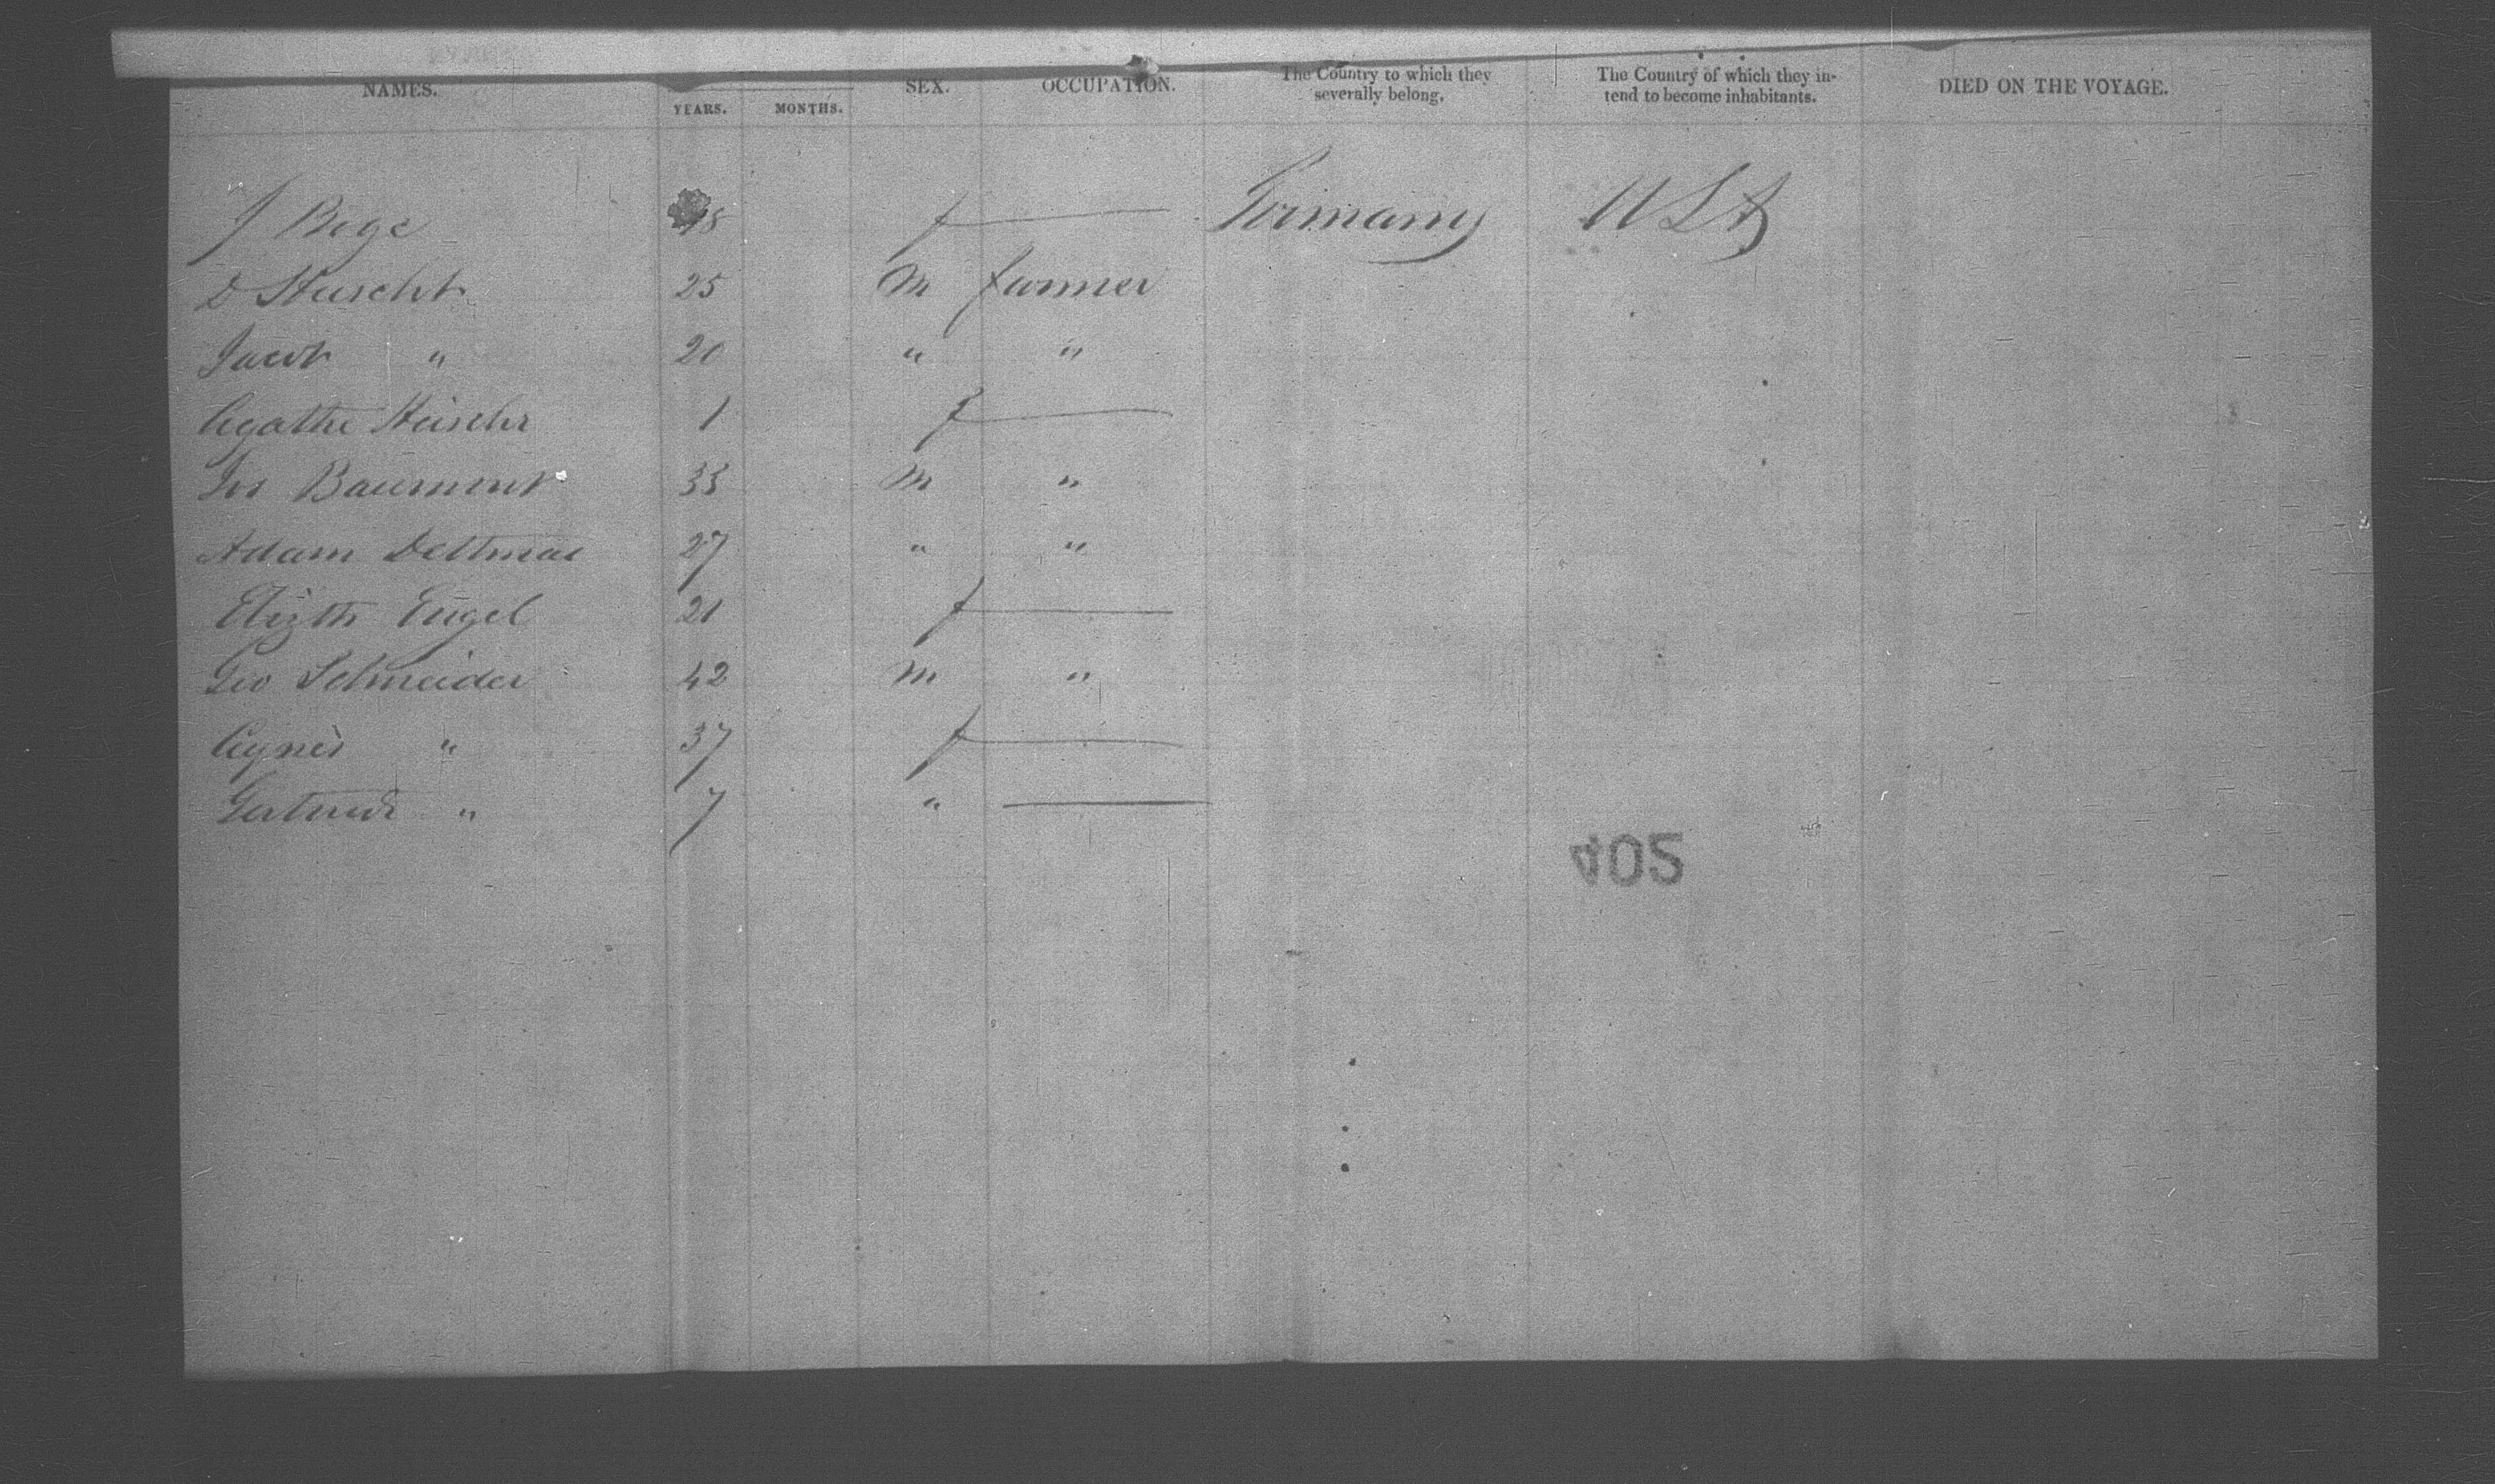 NAMES. YEARS. MONTHS. SEX. OCCUPATION. The Country to which they severally belong. The Country of which they in-tend to become inhabitants. DIED ON THE VOYAGE.
J Bege 18 f — Germany USA
D 25 M farmer
Jacob " 20 " "
Agathe 1 f —
Jos Baumont 33 M "
Adam Dettmar 27 " "
Elizth Engel 21 f —
Geo Schneider 42 M "
Agnes " 37 f —
Gertrude " 7 " —
402